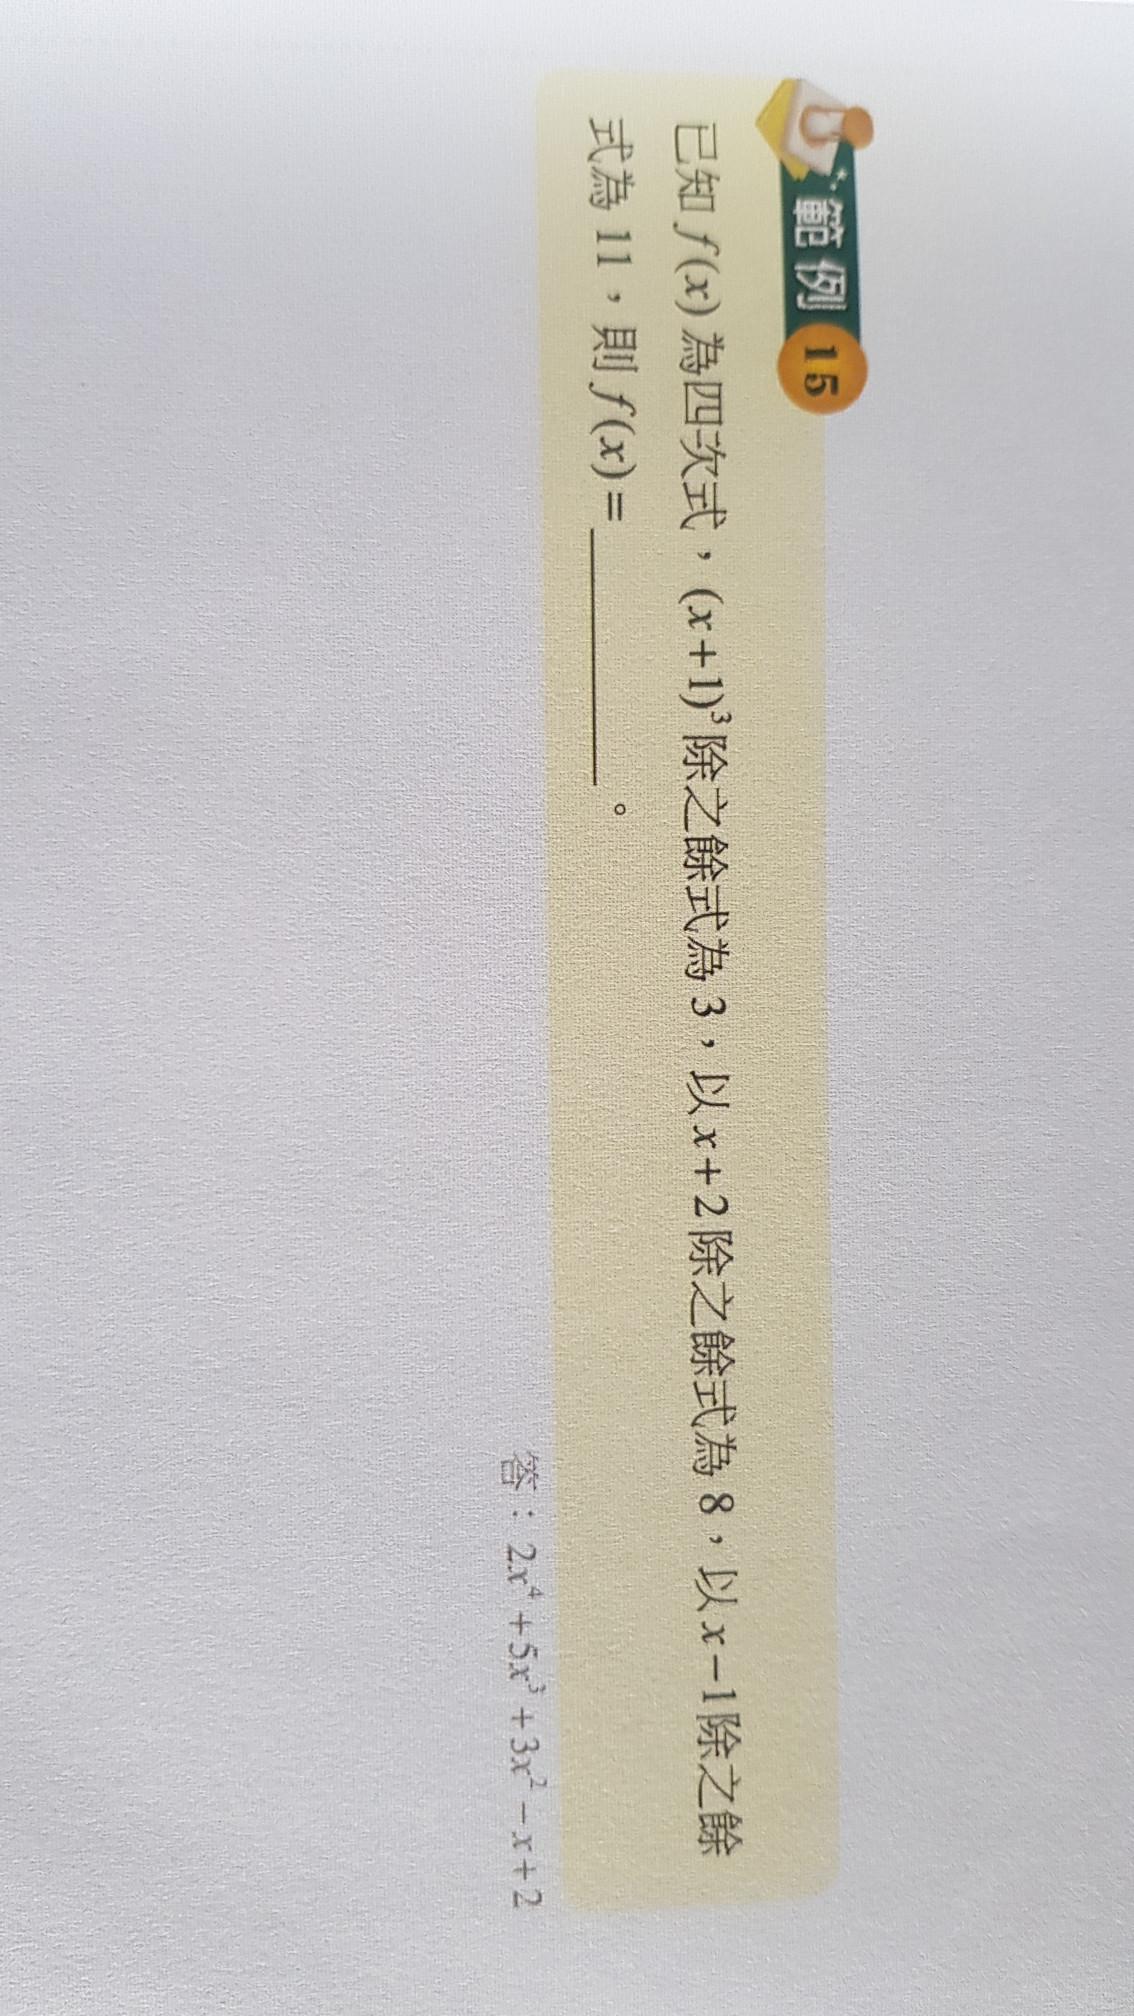 範例 15
已知 f(x) 為四次式，(x+1)³除之餘式為 3，以 x+2 除之餘式為 8，以 x−1 除之餘
式為 11，則 f(x)=＿＿＿＿＿。
答：2x⁴+5x³+3x²−x+2